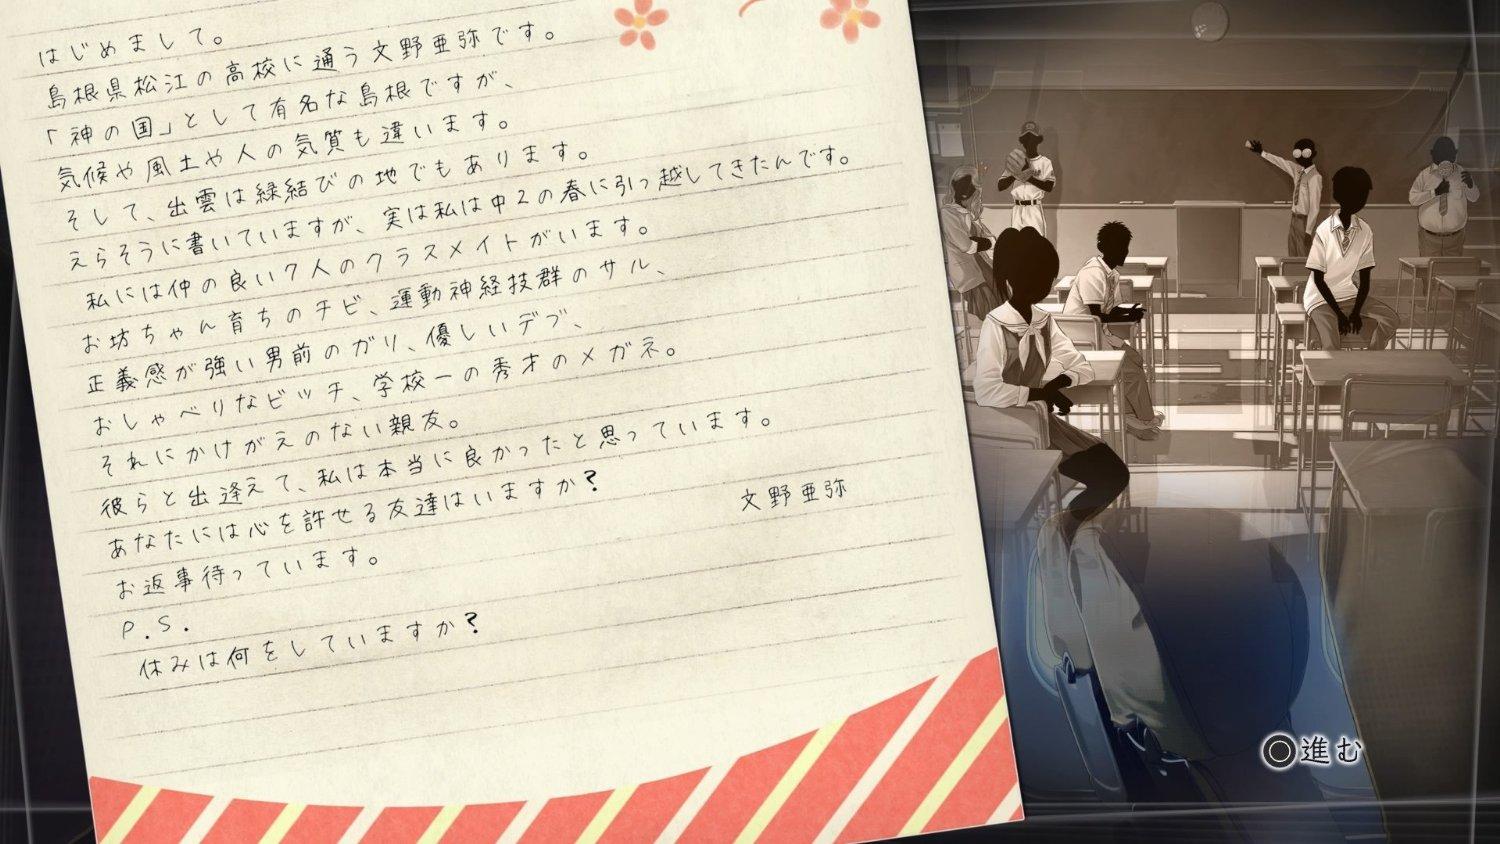 はじめまして。
島根県松江の高校に通う文野亜弥です。
「神の国」として有名な島根ですが、
気候や風土や人の気質も違います。
そして、出雲は縁結びの地でもあります。
えらそうに書いていますが、実は私は中2の春に引っ越してきたんです。
私には仲の良い7人のクラスメイトがいます。
お坊ちゃん育ちのチビ、運動神経技群のサル、
正義感が強い男前のガリ、優しいデブ、
おしゃべりなビッチ、学校一の秀才のメガネ。
それにかけがえのない親友。
彼らと出逢えて、私は本当に良かったと思っています。
あなたには心を許せる友達はいますか?
お返事待っています。
文野亜弥
P.S.
休みは何をしていますか?
進む